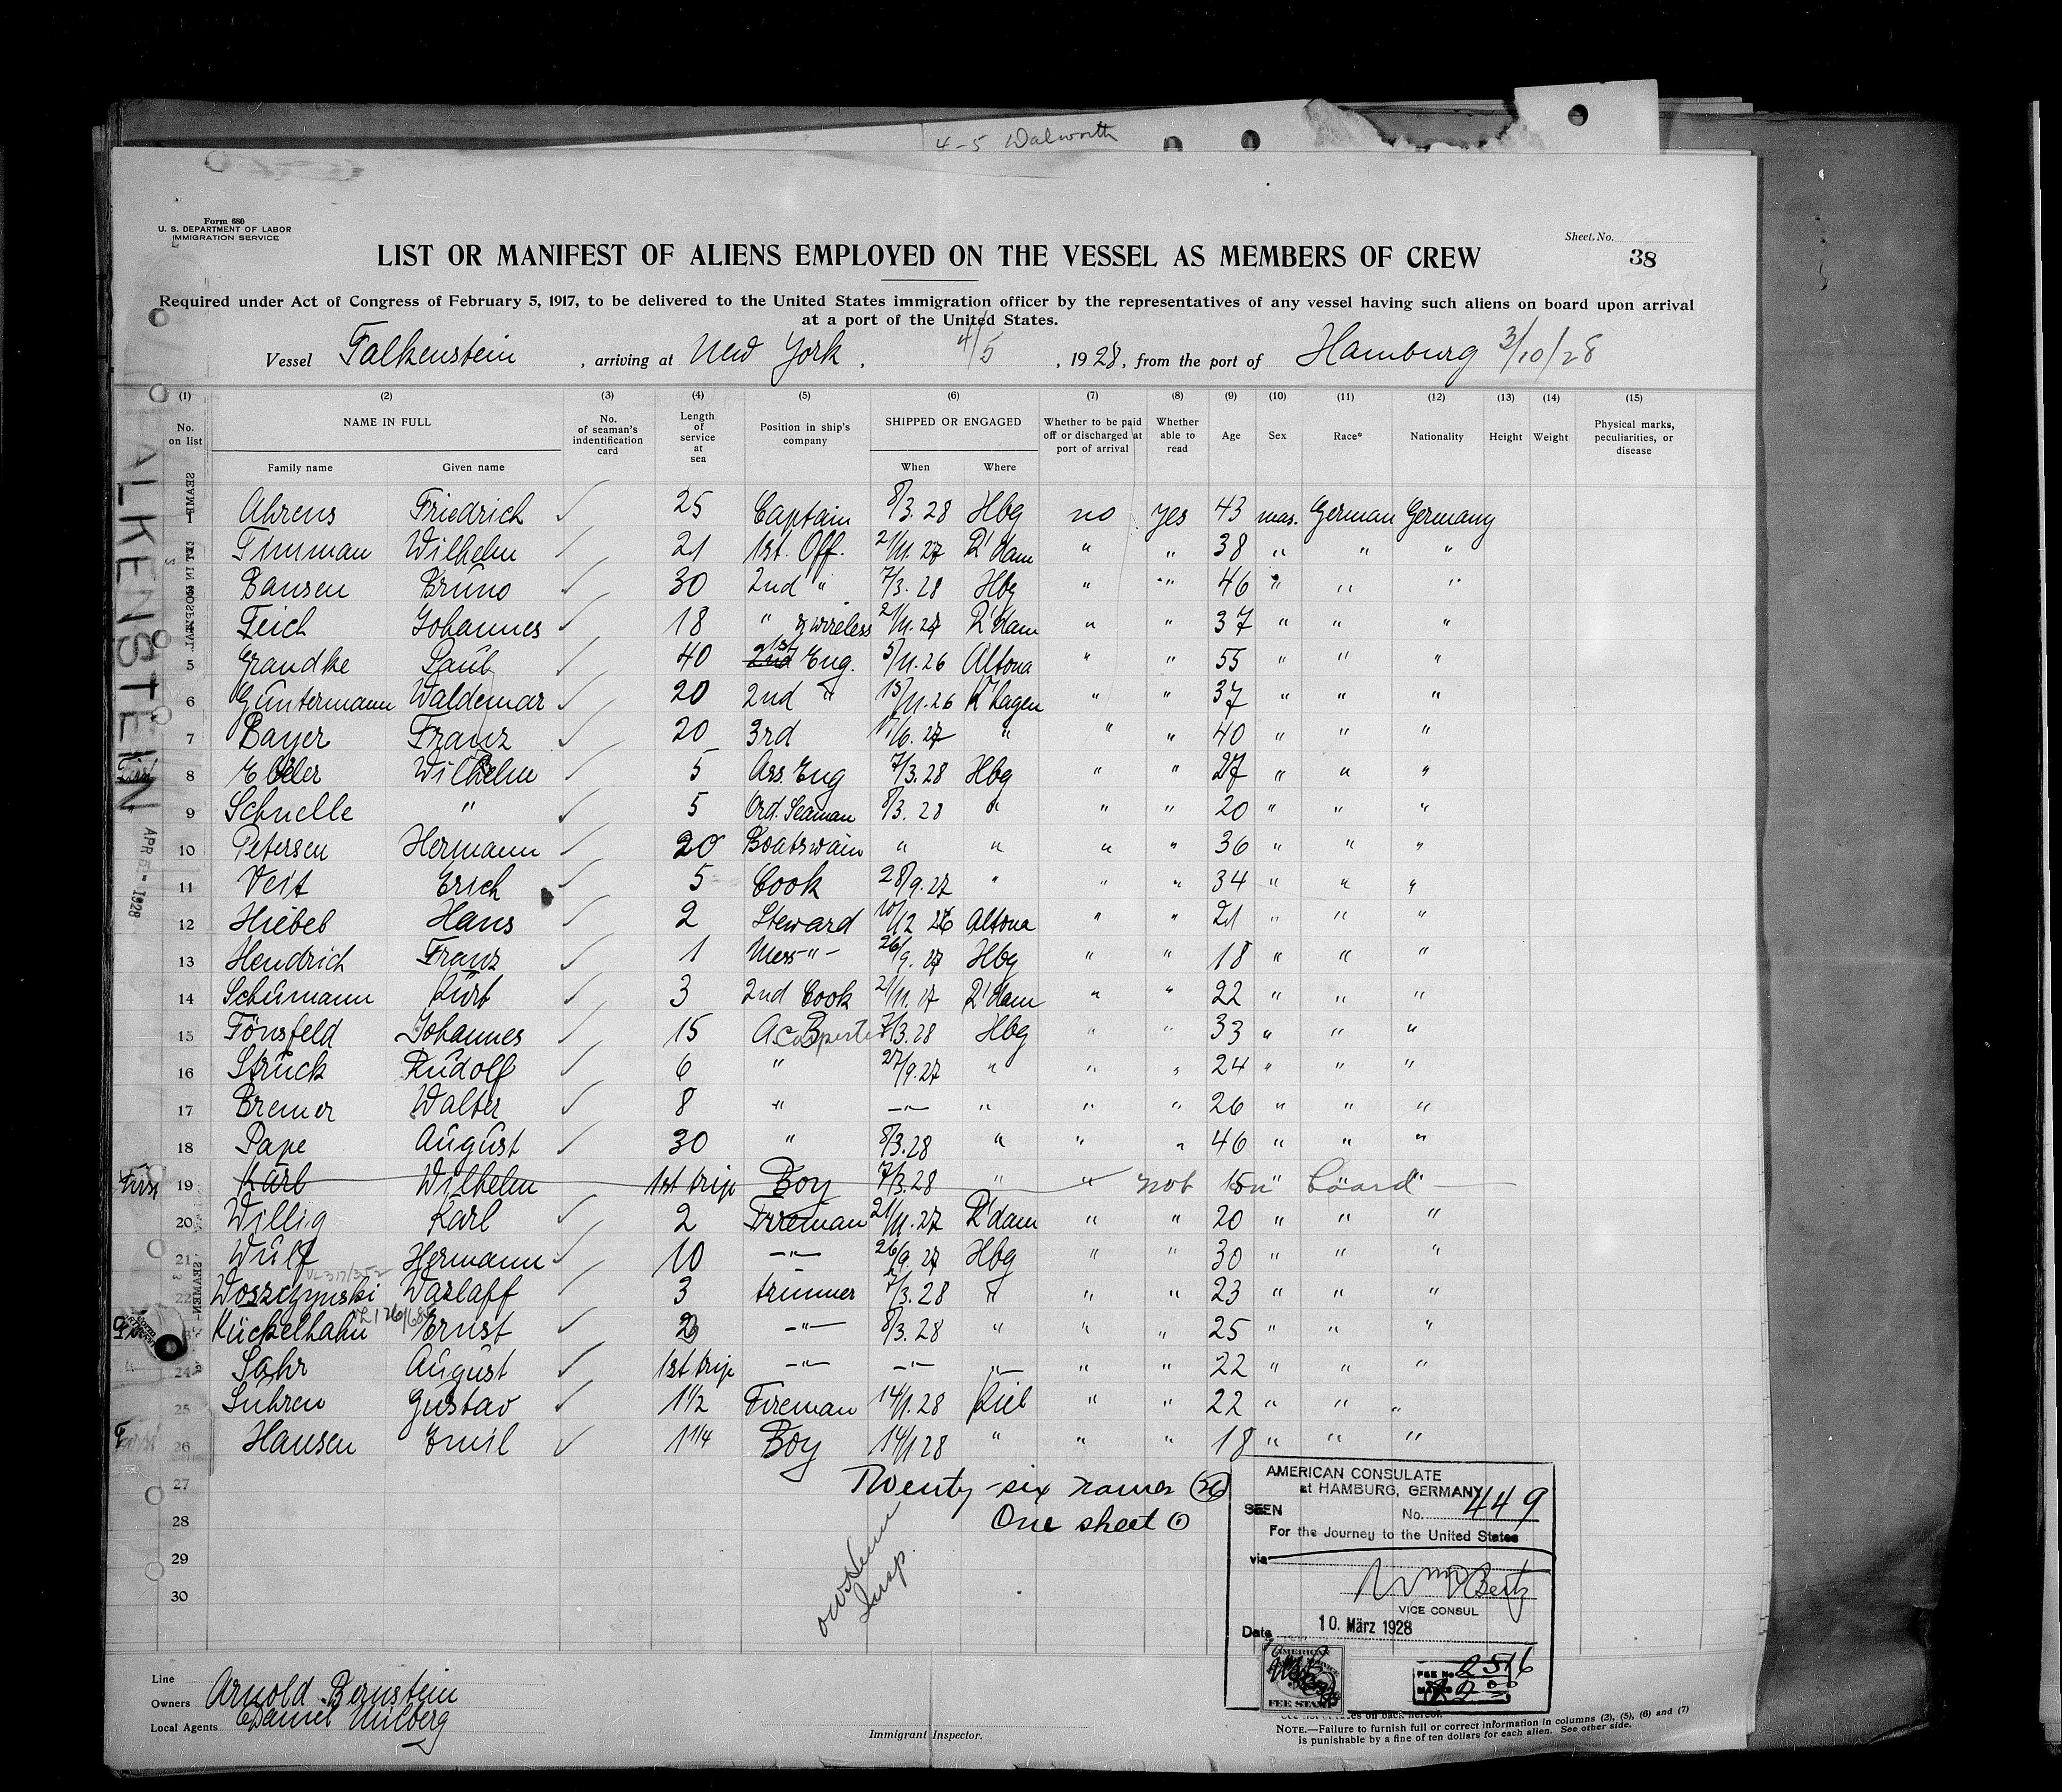 4-5 Walworth
Form 680
U. S. DEPARTMENT OF LABOR
IMMIGRATION SERVICE
Sheet No.
38
LIST OR MANIFEST OF ALIENS EMPLOYED ON THE VESSEL AS MEMBERS OF CREW
Required under Act of Congress of February 5, 1917, to be delivered to the United States immigration officer by the representatives of any vessel having such aliens on board upon arrival
at a port of the United States.
Vessel Falkenstein, arriving at New York, 4/5, 1928, from the port of Hamburg 3/10/28
(1) (2) (3) (4) (5) (6) (7) (8) (9) (10) (11) (12) (13) (14) (15)
No. on list NAME IN FULL No. of seaman's indentification card Length of service at sea Position in ship's company SHIPPED OR ENGAGED Whether to be paid off or discharged at port of arrival Whether able to read Age Sex Race* Nationality Height Weight Physical marks, peculiarities, or disease
Family name Given name When Where
1 Ahrens Friedrich ✓ 25 Captain 8/3. 28 Hbg no yes 43 mas. German Germany
Timman Wilhelm ✓ 21 1st. Off. 21/11. 27 R'dam " " 38 " " "
Bansen Bruno ✓ 30 2nd " 7/3. 28 Hbg " " 46 " " "
Teich Johannes ✓ 18 " & wireless 21/11. 27 R'dam " " 37 " " "
5 Grandke Paul ✓ 40 2nd 1st Eng. 5/11. 26 Altona " " 55 " " "
6 Güntermann Waldemar ✓ 20 2nd " 15/11. 26 K'hagen " " 37 " " "
7 Bayer Franz ✓ 20 3rd 17/6. 27 " " " 40 " " "
8 Wilhelm ✓ 5 Ass. Eng 7/3. 28 Hbg " " 27 " " "
9 Schnelle " ✓ 5 Ord. Seaman 8/3. 28 " " " 20 " " "
10 Petersen Hermann ✓ 20 Boatswain " " " " 36 " " "
11 Veit Erich ✓ 5 Cook 28/9. 27 " " " 34 " " "
12 Hiebel Hans ✓ 2 Steward 10/12 26 Altona " " 21 " " "
13 Hendrich Franz ✓ 1 Mess-"- 26/9. 27 Hbg " " 18 " " "
14 Schümann Kurt ✓ 3 2nd Cook 21/11. 27 R'dam " " 22 " " "
15 Tönsfeld Johannes ✓ 15 A.B. 7/3. 28 Hbg " " 33 " " "
16 Struck Rudolf ✓ 6 " 27/9. 27 " " " 24 " " "
17 Bremer Walter ✓ 8 " -"- " " " 26 " " "
18 Pape August ✓ 30 " 8/3. 28 " " " 46 " " "
First 19 Karl Wilhelm 1st trip Boy 7/3. 28 " " not on board
20 Willig Karl ✓ 2 Fireman 21/11. 27 R'dam " " 20 " " "
21 Wulf Hermann ✓ 10 -"- 26/9. 27 Hbg " " 30 " " "
22 Woszczynski Wazlaff ✓ 3 trimmer 7/3. 28 " " " 23 " " "
Kückelhahn Ernst ✓ 2 -"- 8/3. 28 " " " 25 " " "
24 Sahr August ✓ 1st trip -"- -"- -"- " " 22 " " "
25 Suhren Gustav ✓ 1 1/2 Fireman 14/1. 28 Kiel " " 22 " " "
26 Hansen Emil ✓ 1 1/4 Boy 14/1 28 " " " 18 " " "
27 Twenty-six names (26)
28 One sheet (1)
29
30
Insp.
FALKENSTEIN
APR 5 - 1928
AMERICAN CONSULATE
at HAMBURG, GERMANY
SEEN No. 449
For the Journey to the United States
via
VICE CONSUL
Date 10. März 1928
FEE STAMP
FEE No. 2516
Line
Owners Arnold Bernstein
Local Agents Daniel Milberg
Immigrant Inspector.
NOTE.—Failure to furnish full or correct information in columns (2), (5), (6) and (7)
is punishable by a fine of ten dollars for each alien. See other side.